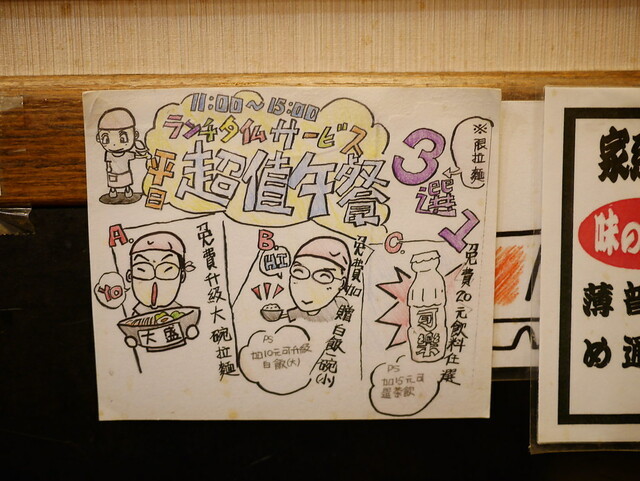 11:00～15:00
ランチタイムサービス
平日
超值午餐
3選1
※限拉麵
A.
免費升級大碗拉麵
Yo
大盛
B.
HI
免費加贈白飯一碗(小)
PS
加10元可升級
白飯(大)
C.
免費20元飲料任選
可樂
PS
加15元可
選茶飲
家
味の
薄
め